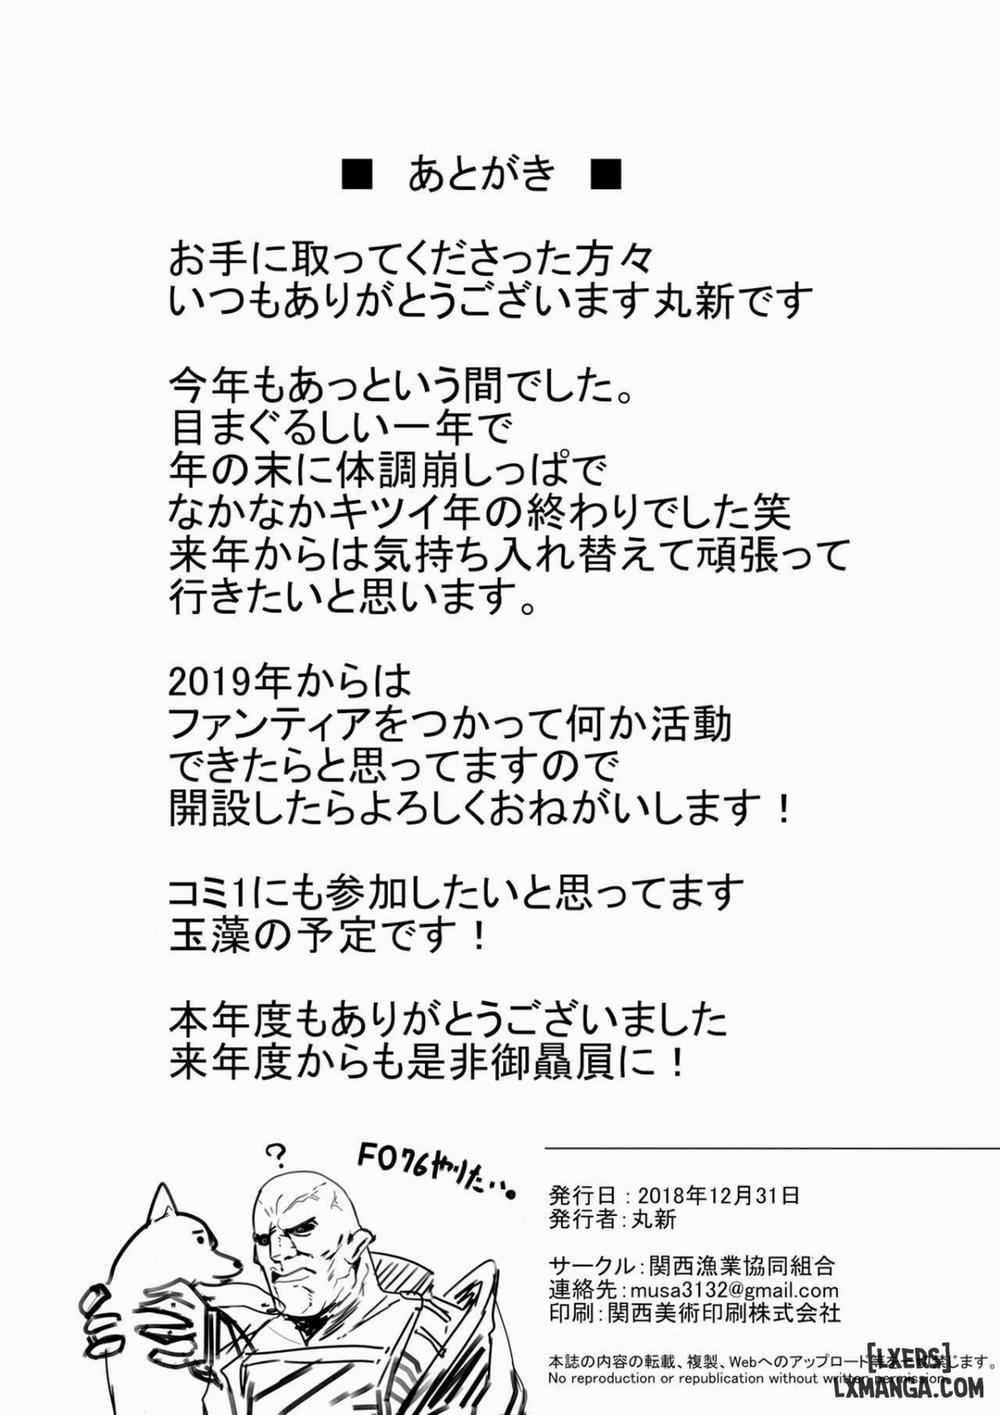 ■ あとがき ■
お手に取ってくださった方々
いつもありがとうございます丸新です
今年もあっという間でした。
目まぐるしい一年で
年の末に体調崩しっぱで
なかなかキツイ年の終わりでした笑
来年からは気持ち入れ替えて頑張って
行きたいと思います。
2019年からは
ファンティアをつかって何か活動
できたらと思ってますので
開設したらよろしくおねがいします！
コミ1にも参加したいと思ってます
玉藻の予定です！
本年度もありがとうございました
来年度からも是非御贔屓に！
?
FO76やりたい。
発行日：2018年12月31日
発行者：丸新
サークル：関西漁業協同組合
連絡先：musa3132@gmail.com
印刷：関西美術印刷株式会社
本誌の内容の転載、複製、Webへのアップロード等を 禁じます。
No reproduction or republication without written permission.
[LXERS]
LXMANGA.COM